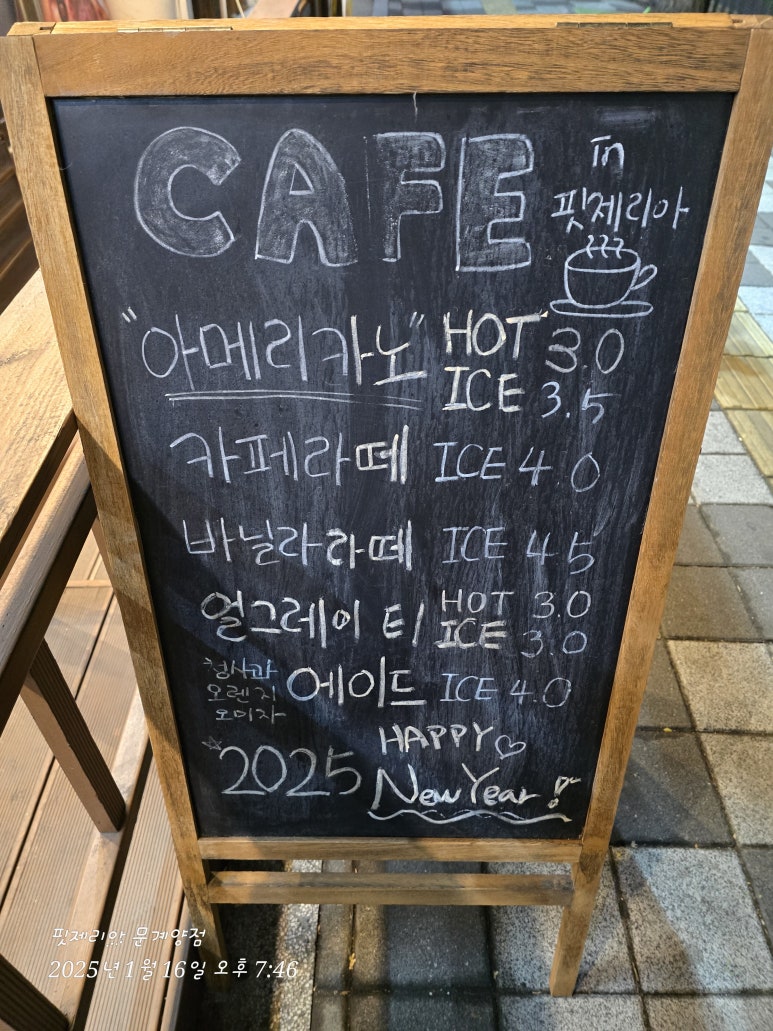 CAFE in
핏제리아
"아메리카노" HOT 3.0
ICE 3.5
카페라떼 ICE 4.0
바닐라라떼 ICE 4.5
얼그레이 티 HOT 3.0
ICE 3.0
청사과
오렌지
오미자
에이드 ICE 4.0
2025 HAPPY
New Year!
핏제리아 문계양점
2025년 1월 16일 오후 7:46